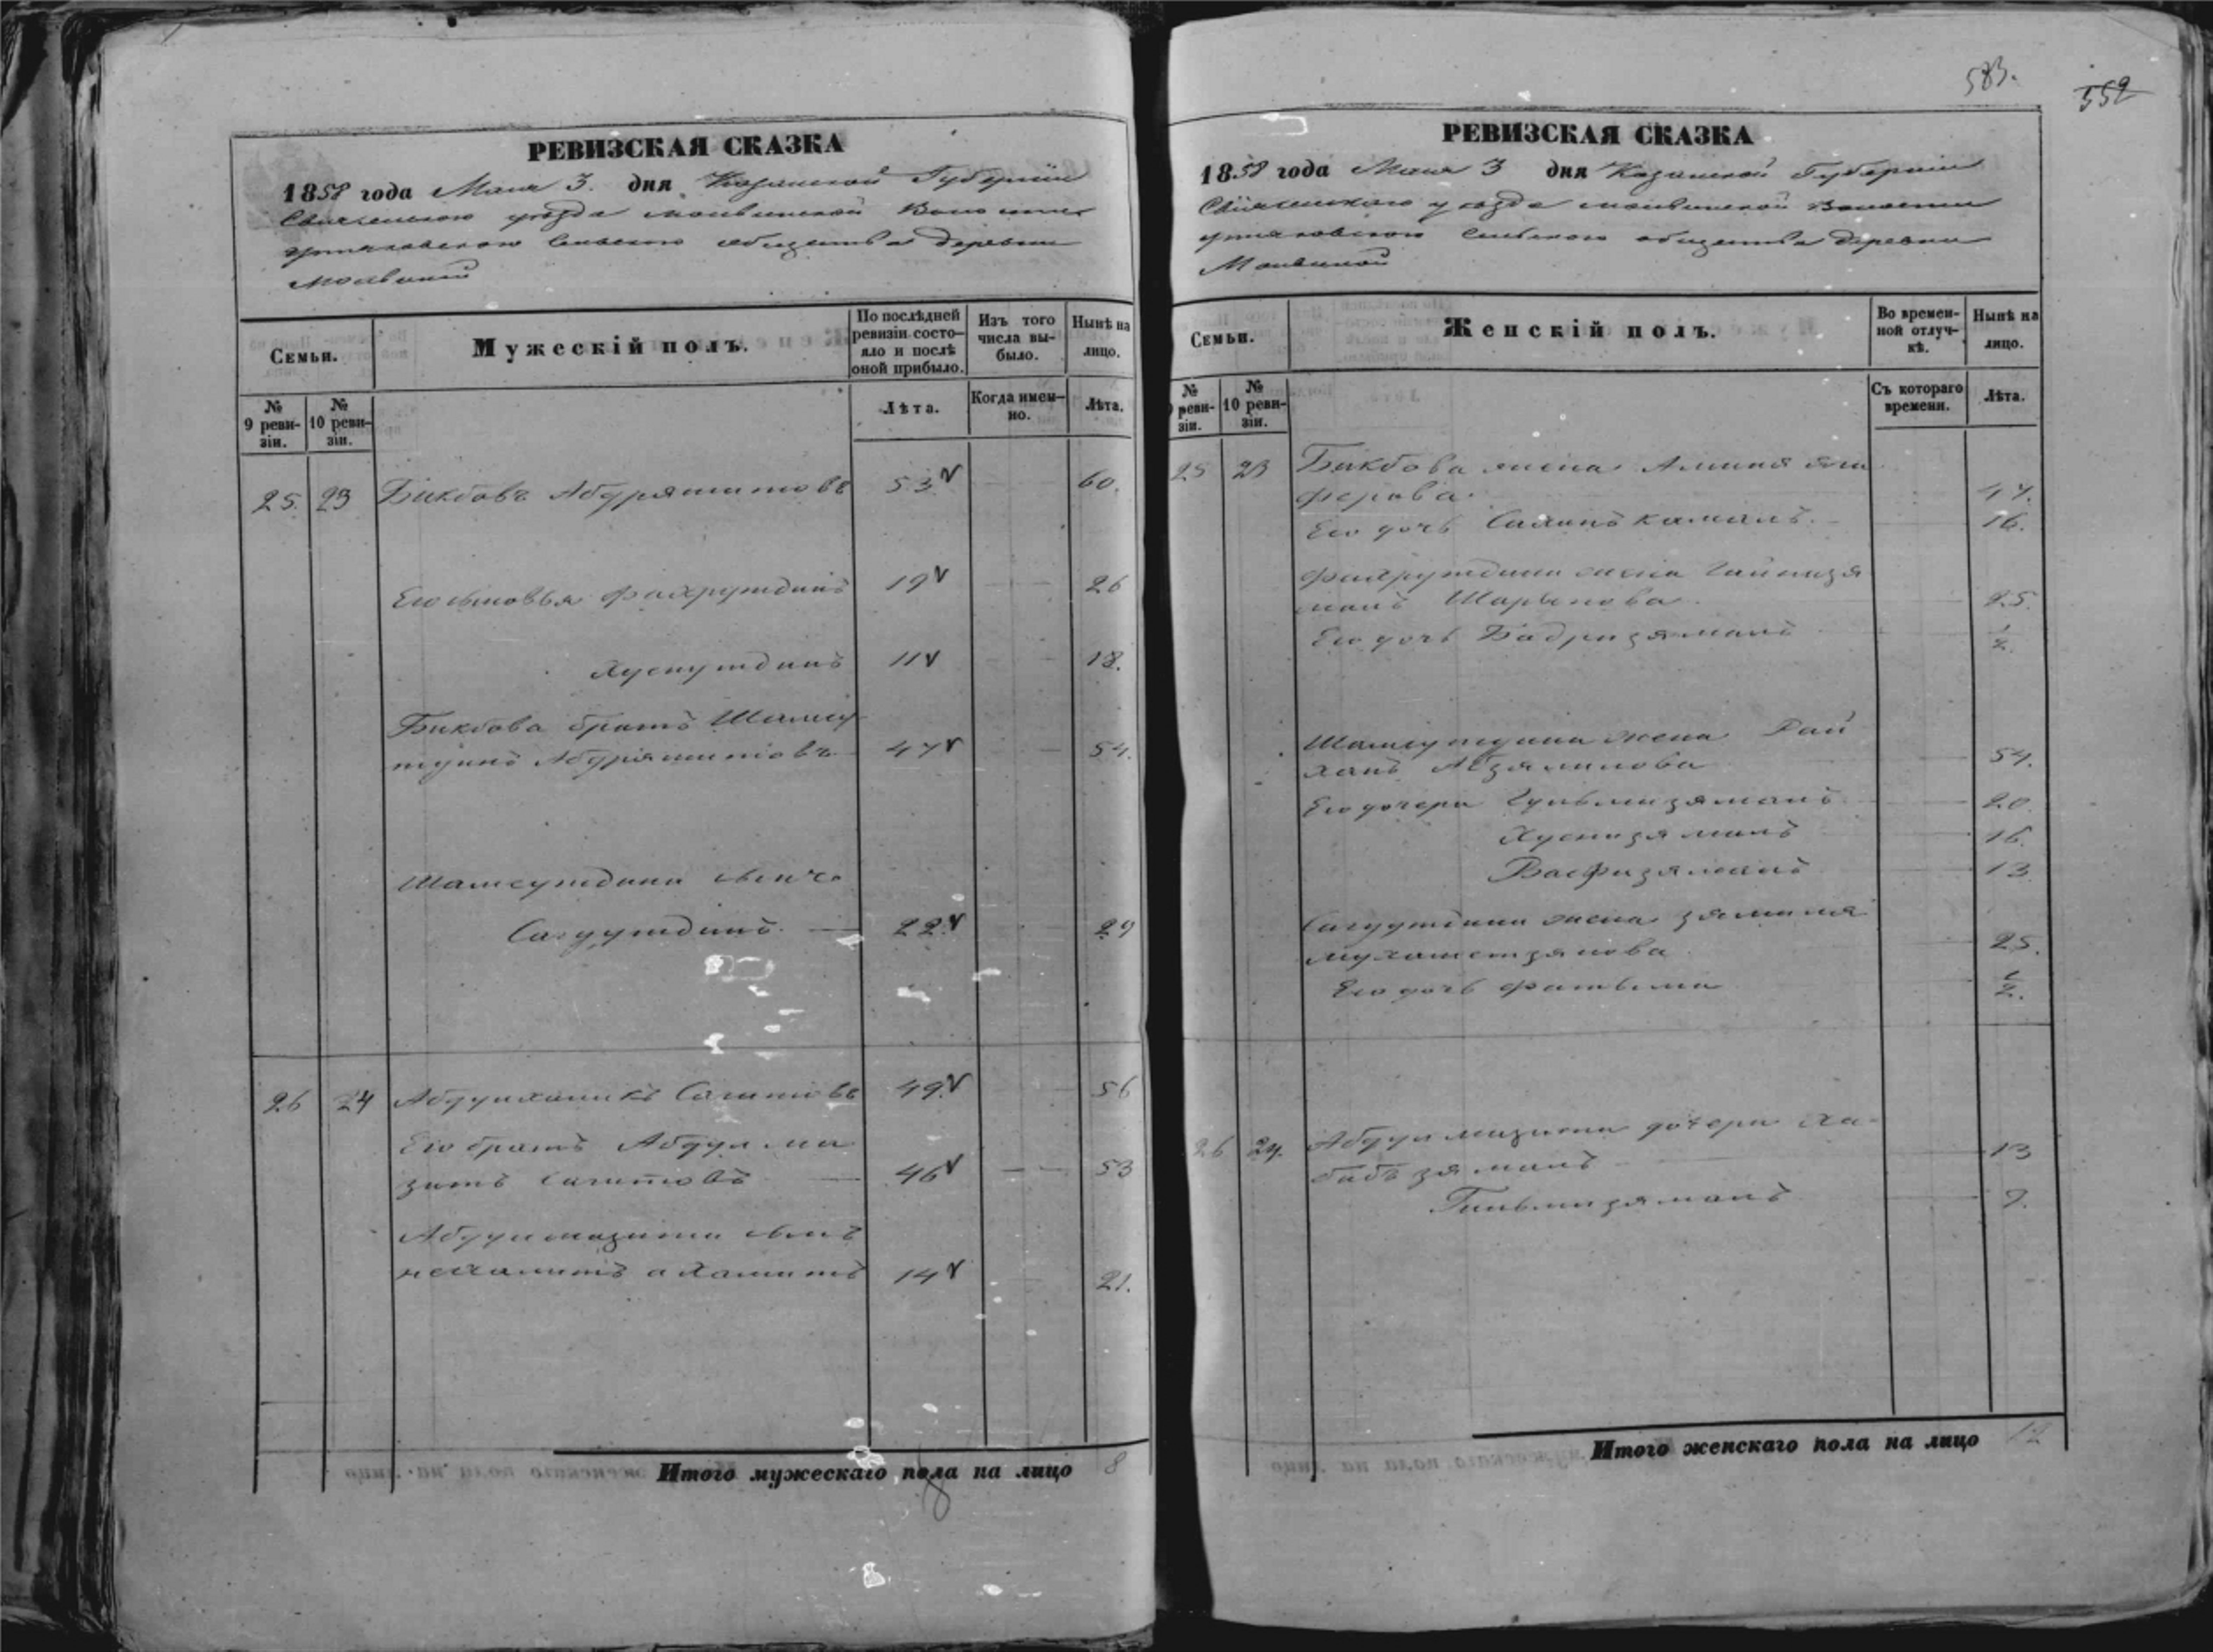 РЕВИЗСКАЯ СКАЗКА
1858 года Маия 3. дня Казанской Губернiи
уезда Моивинской Волости
Сельского общества деревни
Моивиной
Семьи.
Мужескiй полъ.
По послѣдней ревизiи состо-
яло и послѣ
оной прибыло.
Изъ того
числа вы-
было.
Нынѣ на
лицо.
№
9 реви-
зiи.
№
10 реви-
зiи.
Лѣта.
Когда имен-
но.
Лѣта.
25. 23 Бикбовъ Абдряшитовъ 53 60.
Его сыновья Фахрутдинъ 19 26
Хуснутдинъ 11 18.
Бикбова братъ Шамсу
тдинъ Абдряшитовъ 47 54.
Шамсутдина сынъ
Сагдутдинъ. 22 29
26 24 Абдулханикъ Сагитовъ 49 56
Его братъ Абдулма
зитъ Сагитовъ 46 53
Абдулмазита сынъ
14 21.
Итого мужескаго пола на лицо 8
583.
552
РЕВИЗСКАЯ СКАЗКА
1858 года Маия 3 дня Казанской Губернiи
Свiяжскаго уезда Моивинской Волости
Сельского общества деревни
Моивиной
Семьи.
Женскiй полъ.
Во времен-
ной отлуч-
кѣ.
Нынѣ на
лицо.
№
9 реви-
зiи.
№
10 реви-
зiи.
Съ котораго
времени.
Лѣта.
25 23 Бикбова жена
47.
Его дочь 16.
Фахрутдина жена
манъ Шарыпова 25.
Его дочь Бадризяманъ 1/2
Шамсутдина жена Рай
ханъ Абзялилова 54.
Его дочери Гульмизяманъ 20.
Хуснизяманъ 16.
Васфизяманъ 13
Сагдутдина жена Зямиля
Мухаметзянова 25.
Его дочь Фатыма 1/2.
26 24. Абдулмазита дочери Ха-
бибзяманъ 13
Гильмизяманъ 9.
Итого женскаго пола на лицо 12